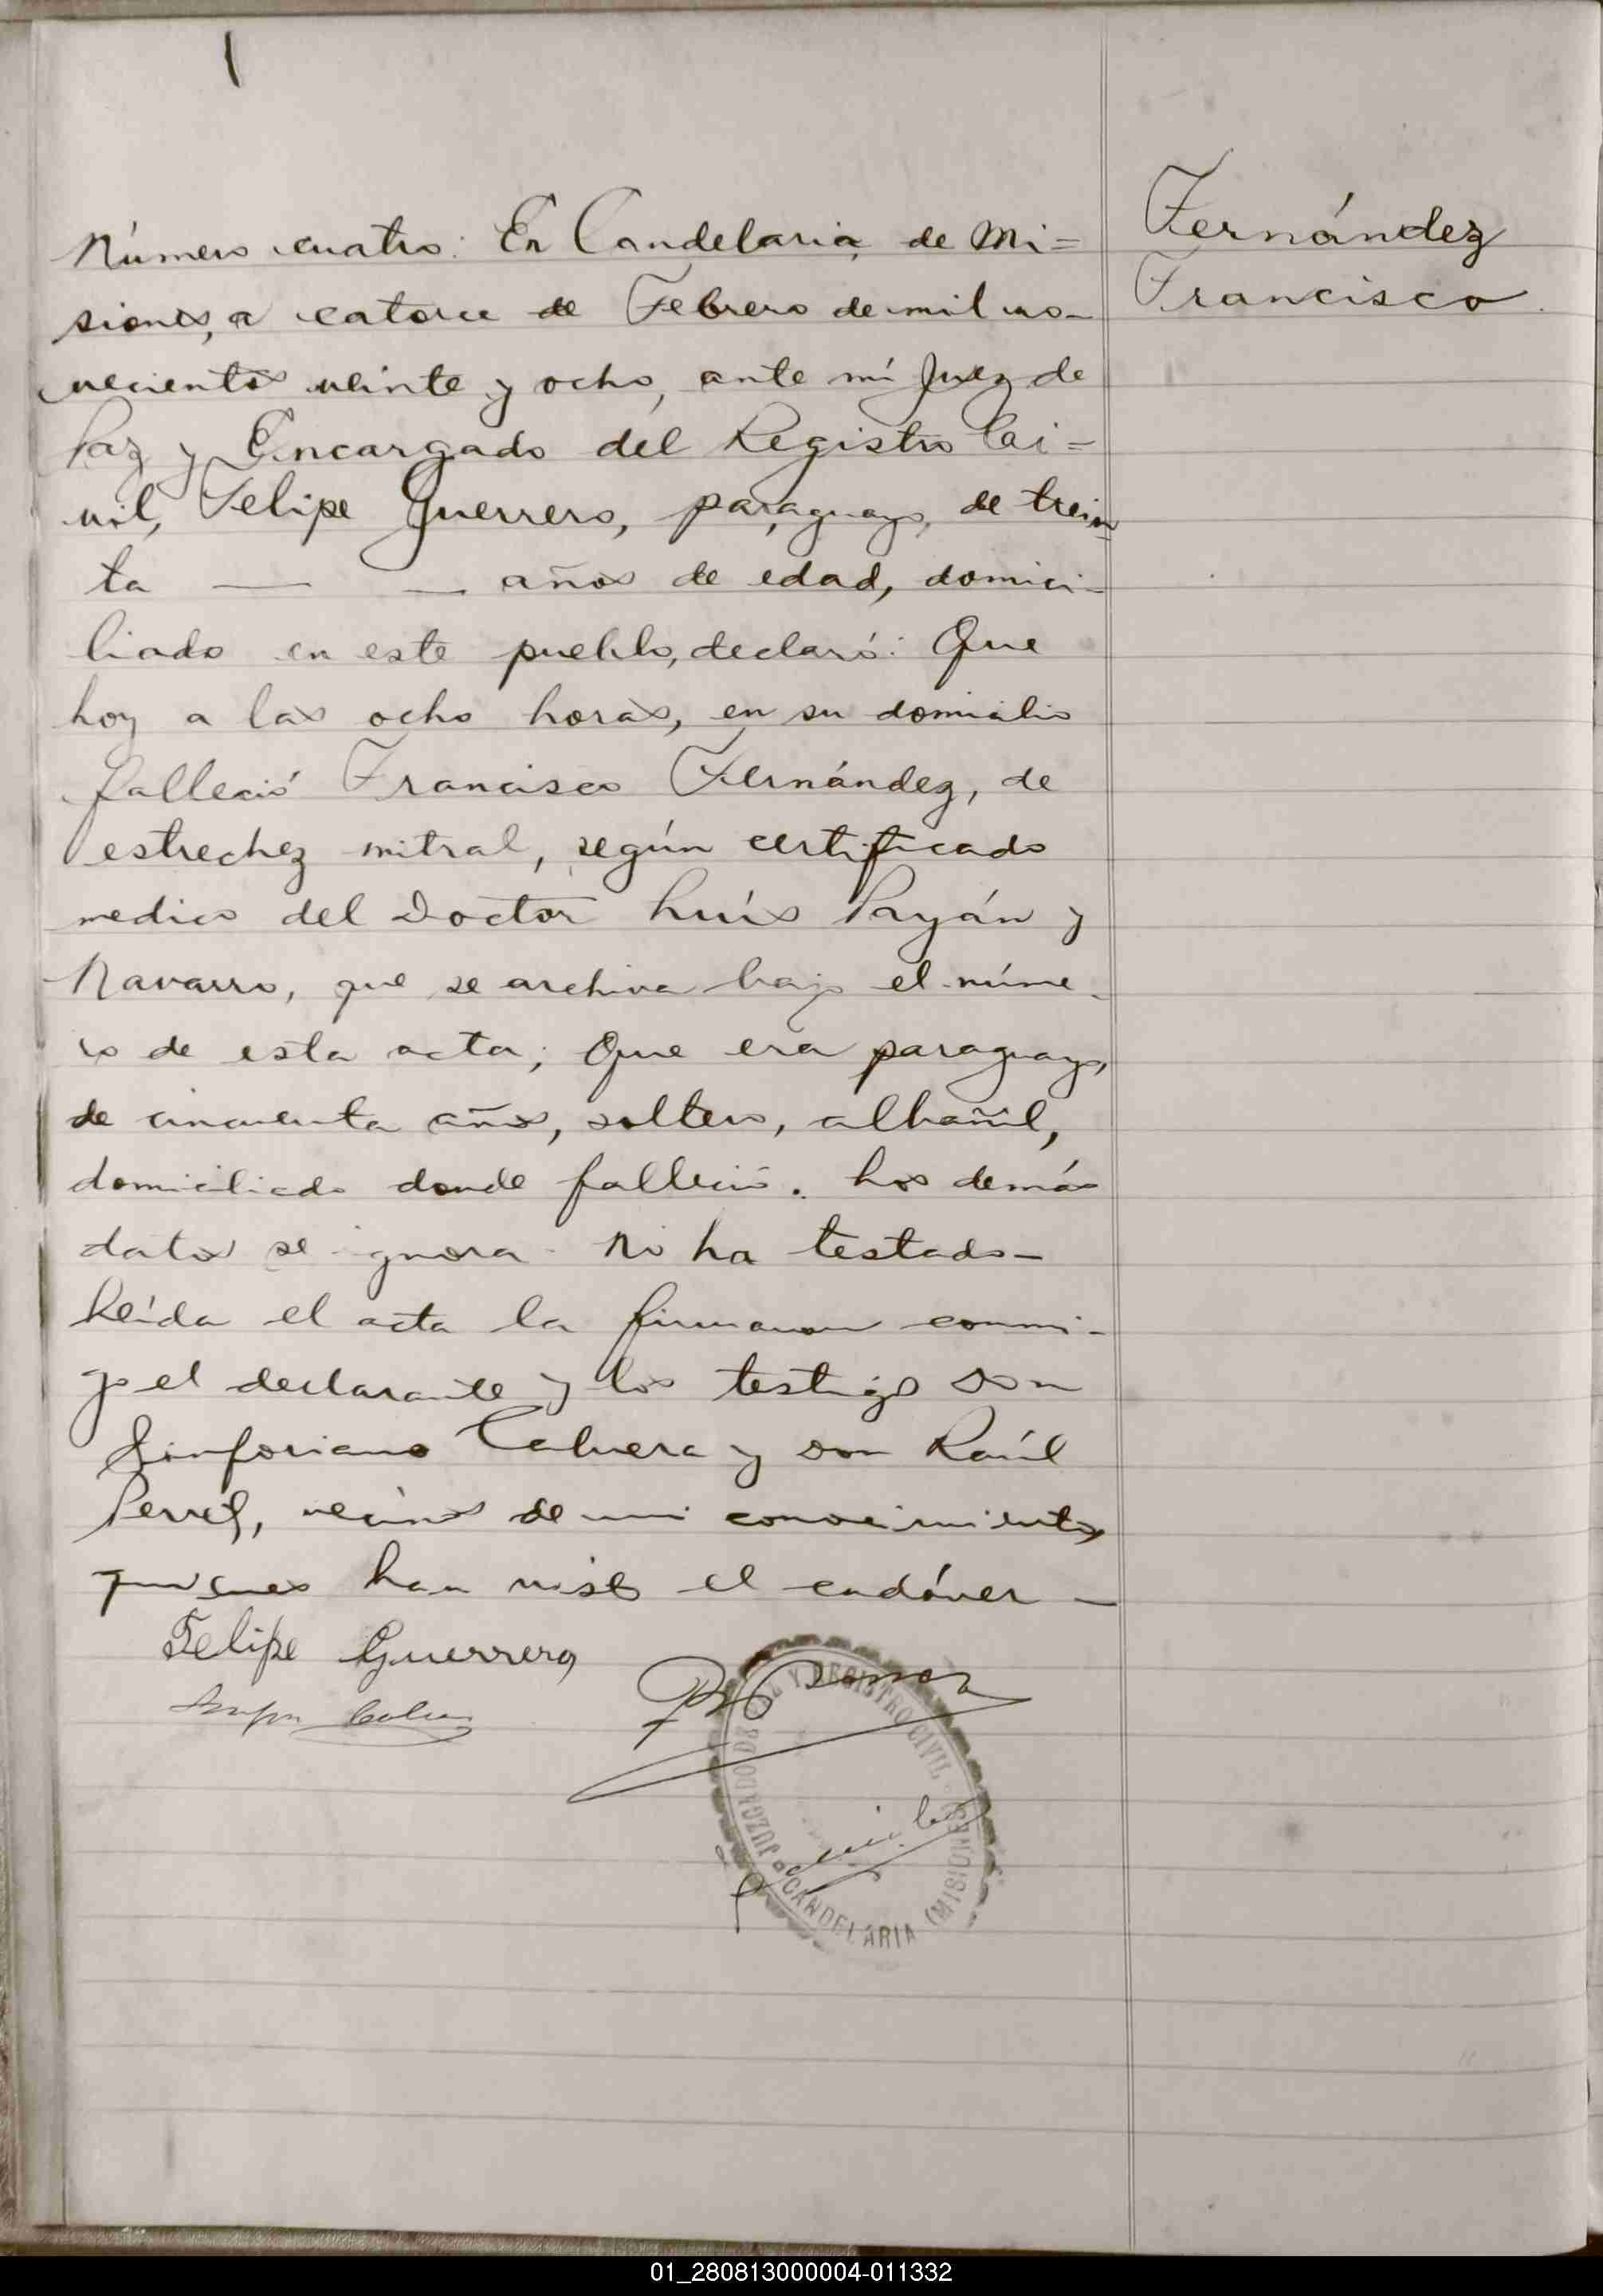 Número cuatro: En Candelaria, de Mi=
siones, a catorce de Febrero de mil no-
vecientos veinte y ocho, ante mí Juez de
Paz y Encargado del Registro Ci=
vil, Felipe Guerrero, paraguayo, de trein=
ta — — años de edad, domici-
liado en este pueblo, declaró: Que
hoy a las ocho horas, en su domicilio
falleció Francisco Fernández, de
estrechez mitral, según certificado
medico del Doctor Luís Payán y
Navarro, que se archiva bajo el núme-
ro de esta acta; Que era paraguayo,
de cincuenta años, soltero, albañil,
domiciliado donde falleció. Los demás
datos se ignora. No ha testado-
Leída el acta la firmaron conmi-
go el declarante y los testigos Don
Sinforiano Cabrera y Don Raúl
vecinos de mi conocimiento,
quienes han visto el cadáver —
Felipe Guerrero
JUZGADO DE PAZ Y REGISTRO CIVIL
CANDELARIA (MISIONES)
Fernández
Francisco.
01_280813000004-011332